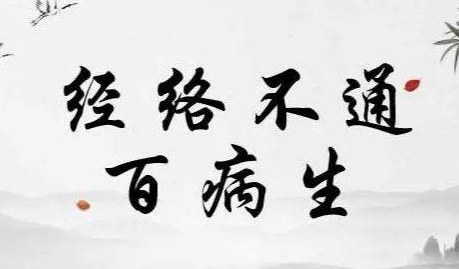 经络不通
百病生